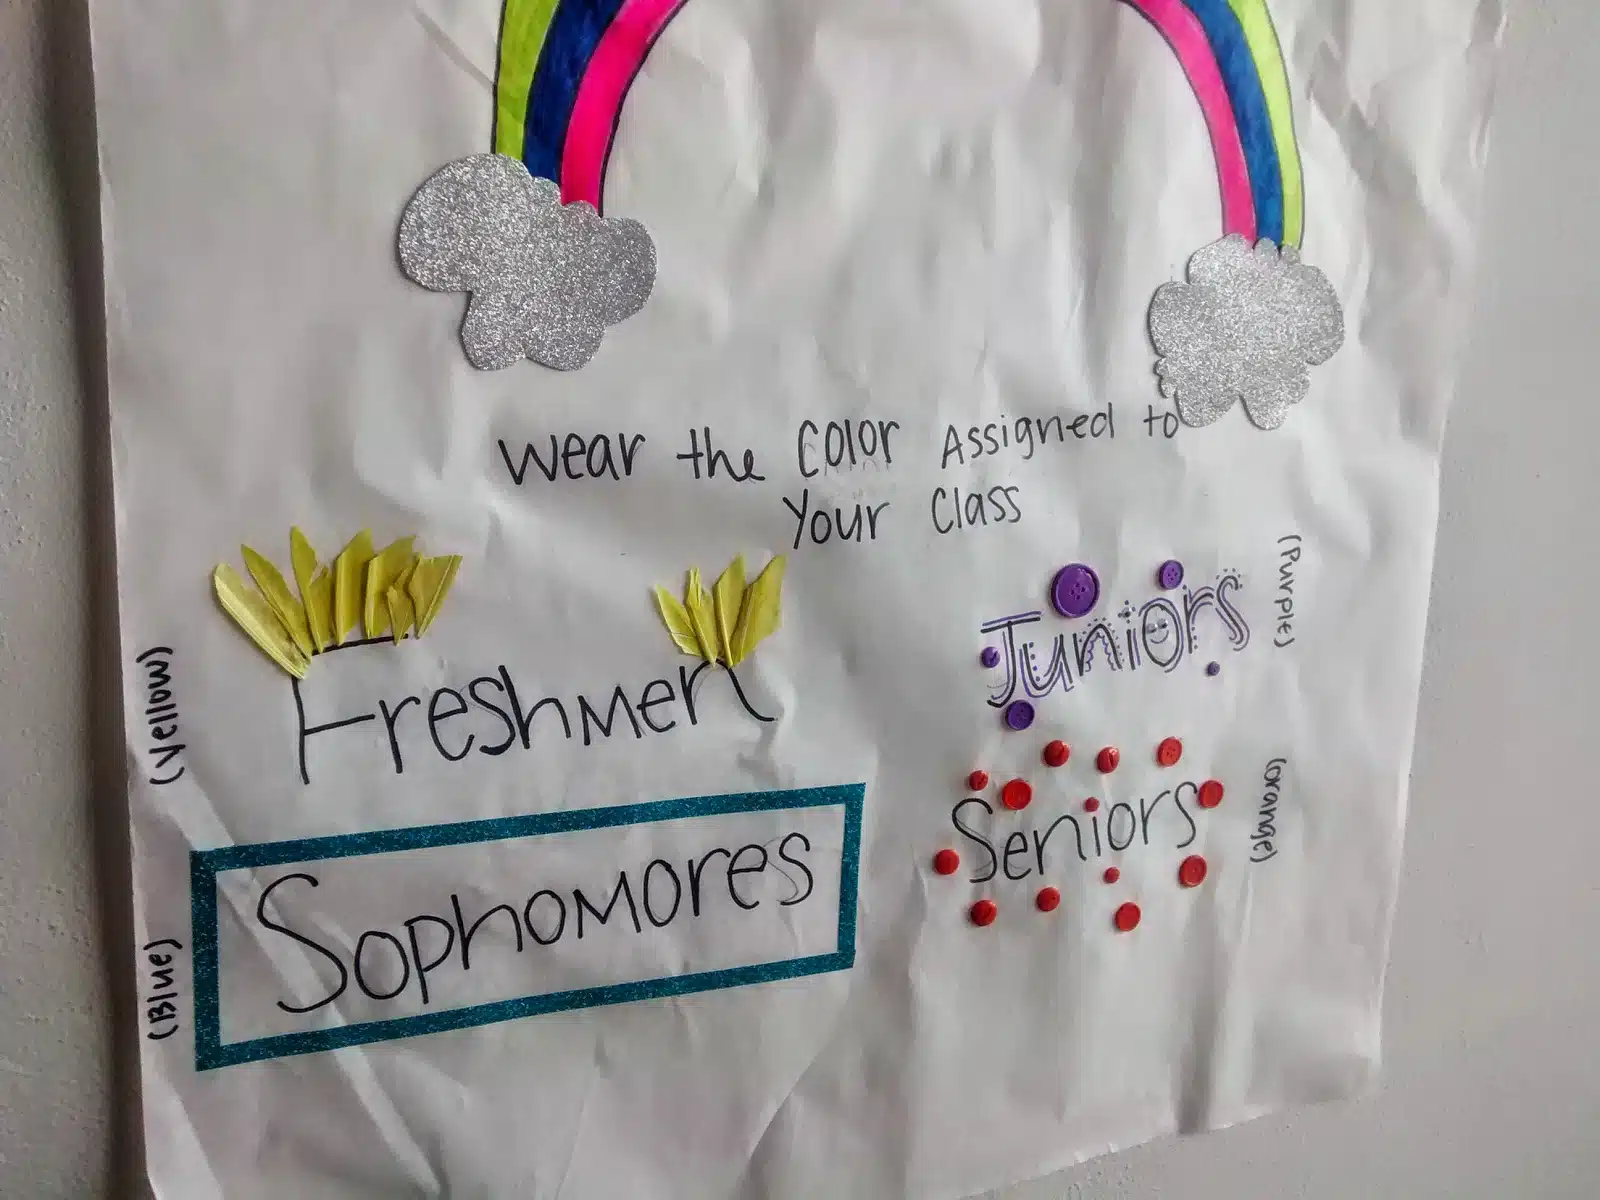 wear the color Assigned to
Your Class
(Yellow)
Freshmen
(Purple)
Juniors
(Blue)
Sophomores
(orange)
Seniors